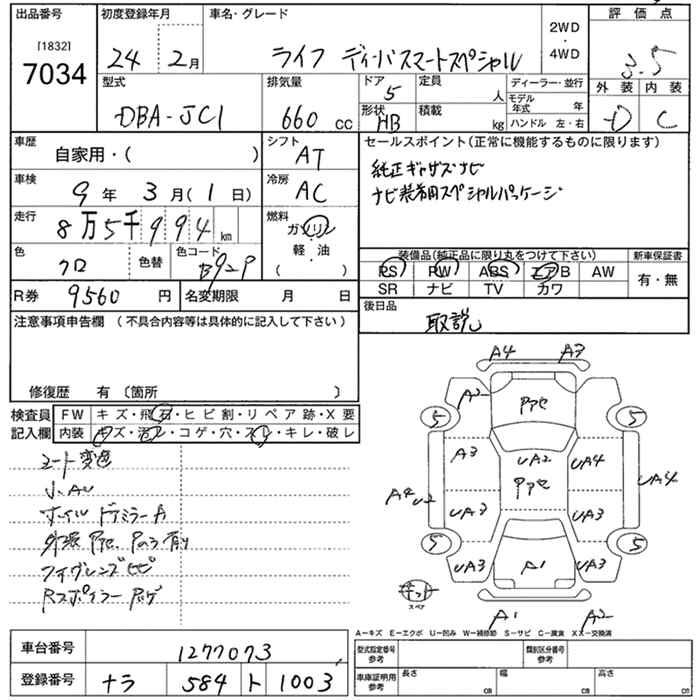 出品番号 初度登録年月 車名・グレード 評価点
[1832]
7034
24年 2月 ライフ ディーバスマートスペシャル 2WD・4WD 3.5
型式 排気量 ドア 定員 ディーラー・並行 外装 内装
DBA-JC1 660cc 5 人 モデル年式 年 D C
形状 積載 ハンドル 左・右
HB kg
車歴 シフト セールスポイント(正常に機能するものに限ります)
自家用・( ) AT
車検 冷房 純正ギャザズナビ
9年 3月(1日) AC ナビ装着用スペシャルパッケージ
走行 燃料
8万5千994km ガソリン
色 色替 色コード 軽・油 装備品(純正品に限り丸をつけて下さい) 新車保証書
クロ B92P ( ) PS PW ABS エアB AW 有・無
SR ナビ TV カワ
R券 9560円 名変期限 月 日 後日品
注意事項申告欄 (不具合内容等は具体的に記入して下さい) 取説
修復歴 有 〔箇所 〕
検査員記入欄 FW キズ・飛石・ヒビ割・リペア跡・X要
内装 キズ・汚レ・コゲ・穴・スレ・キレ・破レ
小AU
ホイル ドアミラーA
A4 A3
A2 アセ
5 5
A3 UA2 UA4
アセ
A4 U2 UA4
UA3 UA3
5 5
UA3 A1 UA3
スペア
A1 A2
A－キズ E－エクボ U－凹み W－補修跡 S－サビ C－腐食 XX－交換済
車台番号 1277073 型式指定番号 参考 類別区分番号 参考
登録番号 ナラ 584 ト 1003 車庫証明用 参考 長さ cm 幅 cm 高さ cm